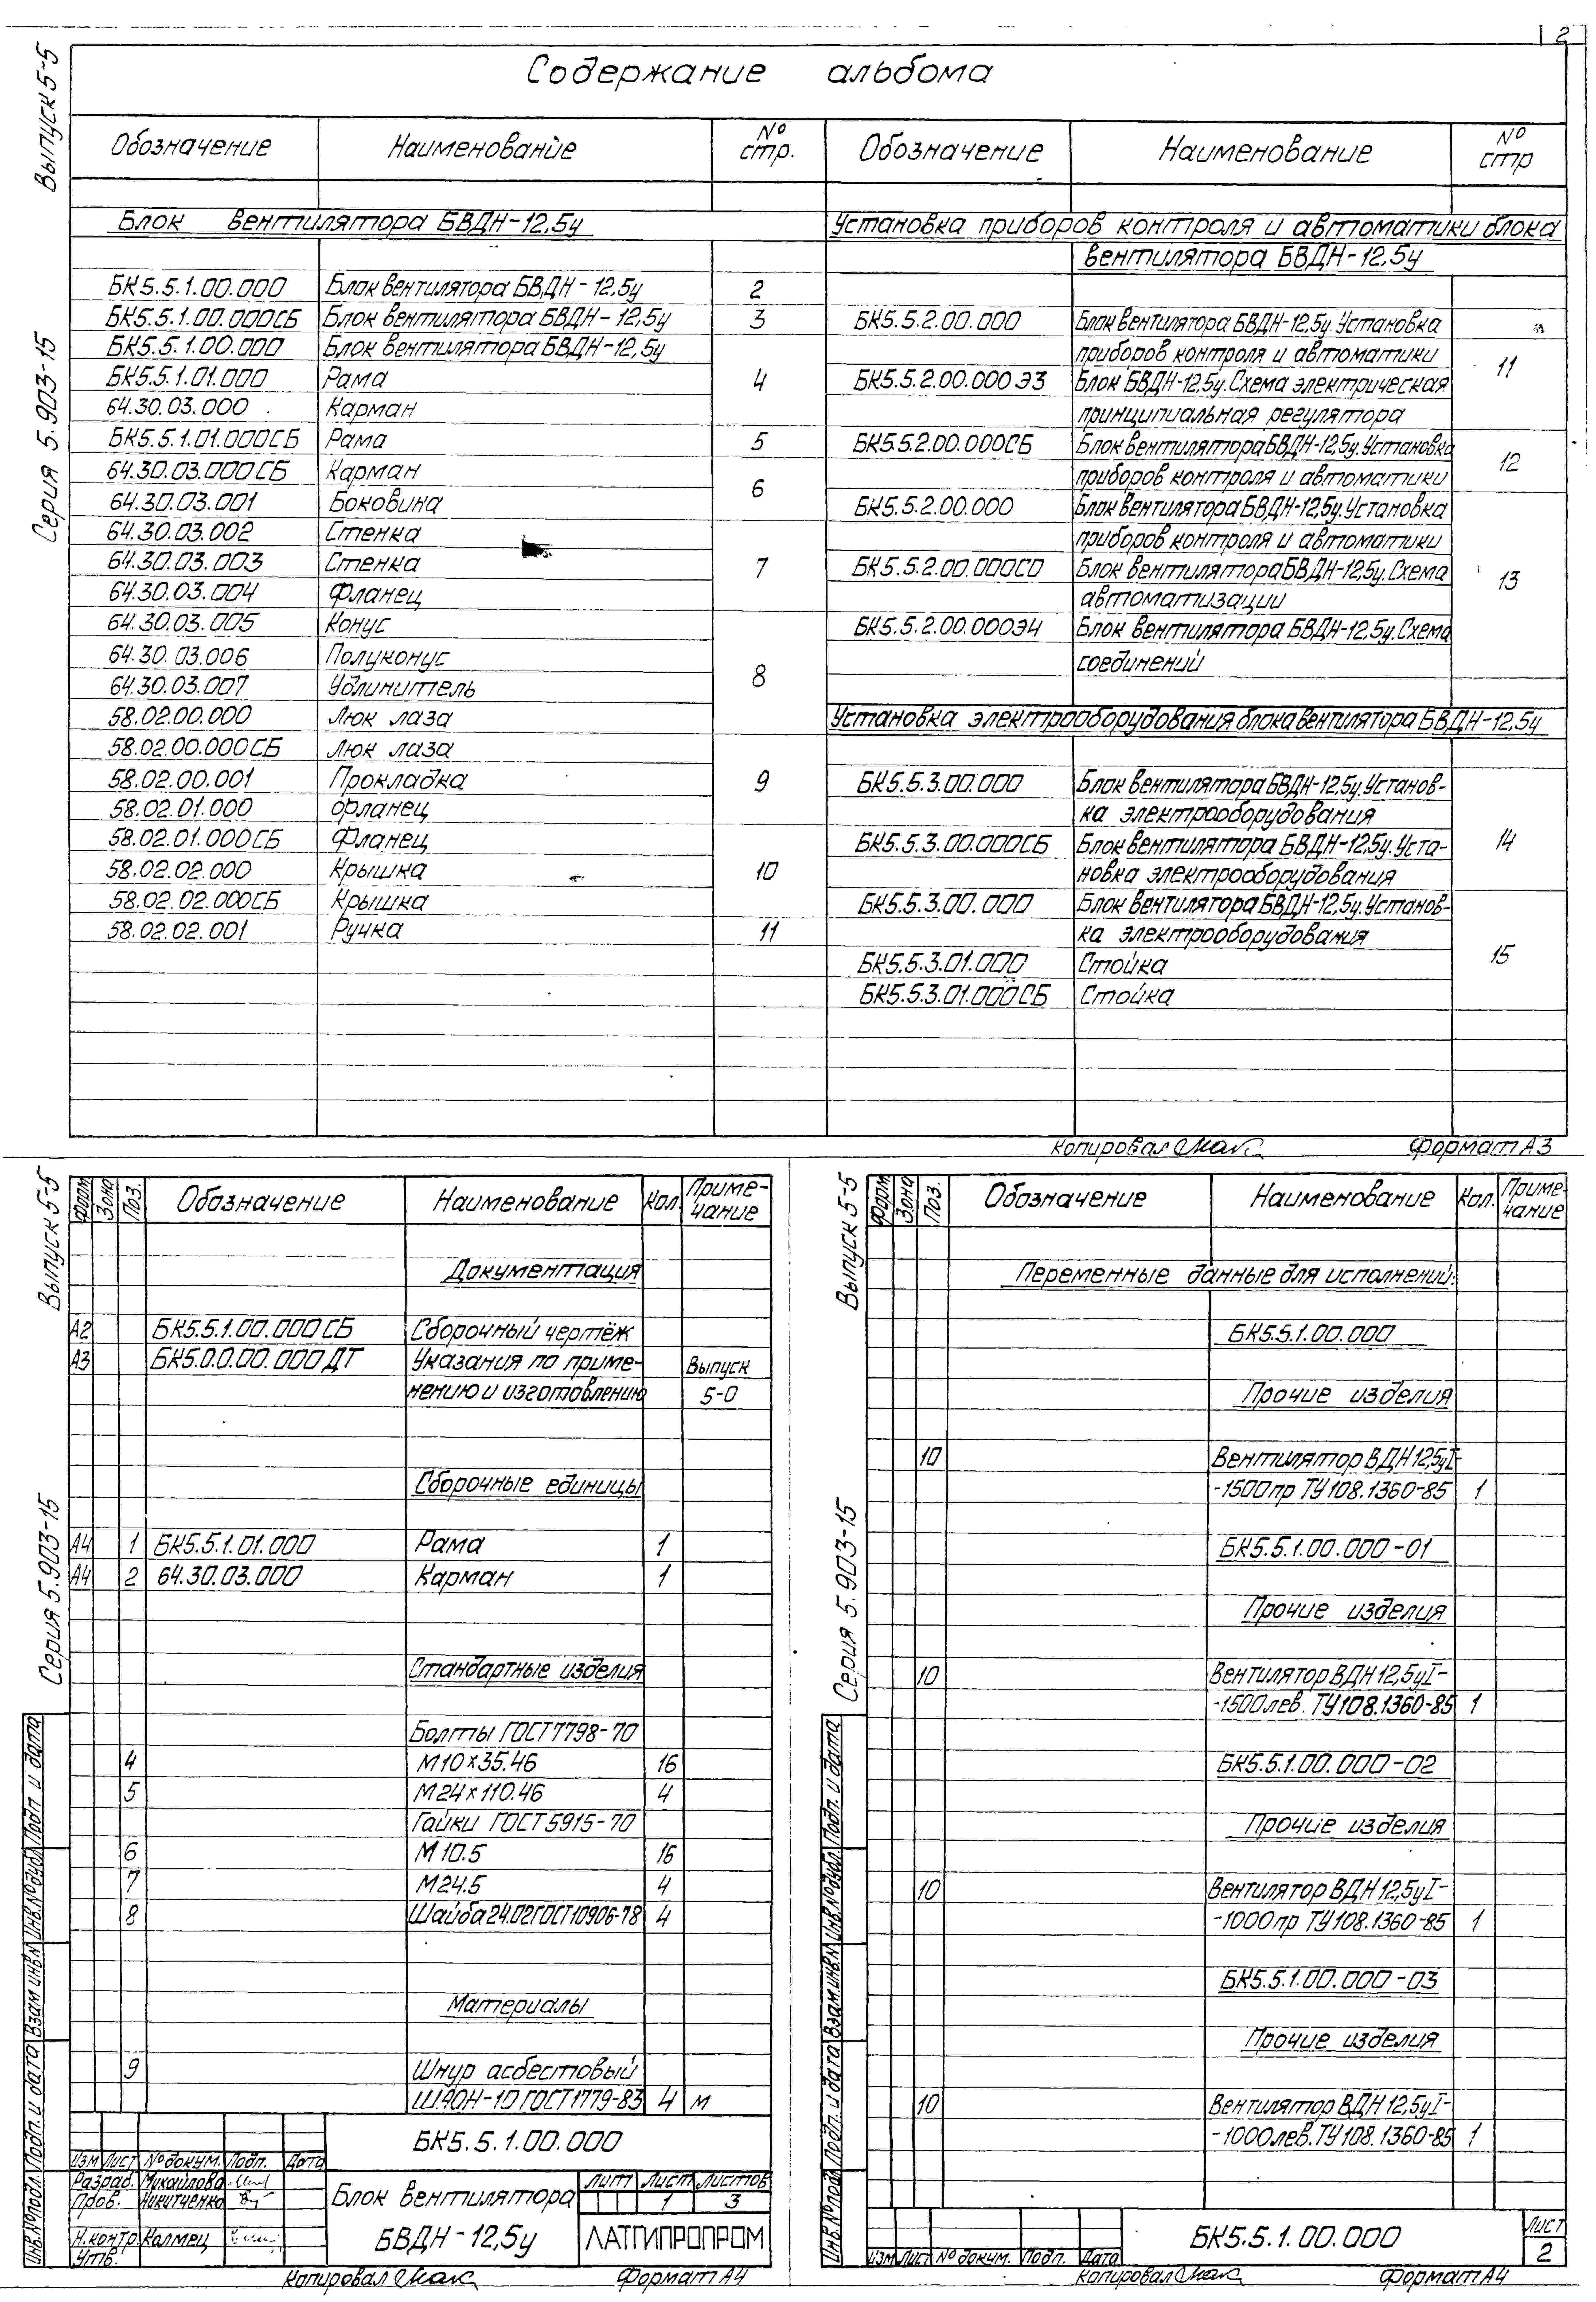 2
Выпуск 5-5
Серия 5.903-15
Содержание альбома
Обозначение Наименование № стр. Обозначение Наименование № стр
Блок вентилятора БВДН-12,5у
БК5.5.1.00.000 Блок вентилятора БВДН-12,5у 2
БК5.5.1.00.000СБ Блок вентилятора БВДН-12,5у 3
БК5.5.1.00.000 Блок вентилятора БВДН-12,5у
БК5.5.1.01.000 Рама 4
64.30.03.000 Карман
БК5.5.1.01.000СБ Рама 5
64.30.03.000СБ Карман
64.30.03.001 Боковина 6
64.30.03.002 Стенка
64.30.03.003 Стенка 7
64.30.03.004 Фланец
64.30.03.005 Конус
64.30.03.006 Полуконус
64.30.03.007 Удлинитель 8
58.02.00.000 Люк лаза
58.02.00.000СБ Люк лаза
58.02.00.001 Прокладка 9
58.02.01.000 Фланец
58.02.01.000СБ Фланец
58.02.02.000 Крышка 10
58.02.02.000СБ Крышка
58.02.02.001 Ручка 11
Установка приборов контроля и автоматики блока
вентилятора БВДН-12,5у
БК5.5.2.00.000 Блок вентилятора БВДН-12,5у. Установка
приборов контроля и автоматики 11
БК5.5.2.00.000Э3 Блок БВДН-12,5у. Схема электрическая
принципиальная регулятора
БК5.5.2.00.000СБ Блок вентилятора БВДН-12,5у. Установка 12
приборов контроля и автоматики
БК5.5.2.00.000 Блок вентилятора БВДН-12,5у. Установка
приборов контроля и автоматики
БК5.5.2.00.000СО Блок вентилятора БВДН-12,5у. Схема 13
автоматизации
БК5.5.2.00.000Э4 Блок вентилятора БВДН-12,5у. Схема
соединений
Установка электрооборудования блока вентилятора БВДН-12,5у
БК5.5.3.00.000 Блок вентилятора БВДН-12,5у. Установ-
ка электрооборудования
БК5.5.3.00.000СБ Блок вентилятора БВДН-12,5у. Уста- 14
новка электрооборудования
БК5.5.3.00.000 Блок вентилятора БВДН-12,5у. Установ-
ка электрооборудования
БК5.5.3.01.000 Стойка 15
БК5.5.3.01.000СБ Стойка
Копировал Формат А3
Выпуск 5-5
Серия 5.903-15
Форм Зона Поз. Обозначение Наименование Кол. Приме-
чание
Документация
А2 БК5.5.1.00.000СБ Сборочный чертёж
А3 БК5.0.0.00.000ДТ Указания по приме- Выпуск
нению и изготовлению 5-0
Сборочные единицы
А4 1 БК5.5.1.01.000 Рама 1
А4 2 64.30.03.000 Карман 1
Стандартные изделия
Болты ГОСТ 7798-70
4 М10×35.46 16
5 М24×110.46 4
Гайки ГОСТ 5915-70
6 М10.5 16
7 М24.5 4
8 Шайба 24.02 ГОСТ 10906-78 4
Материалы
9 Шнур асбестовый
ШАОН-10 ГОСТ 1779-83 4 м
Инв.№ подл. Подп. и дата Взам инв.№ Инв.№ дубл. Подп. и дата
БК5.5.1.00.000
Изм Лист № докум. Подп. Дата
Разраб. Михайлова
Пров. Никитченко
Н.контр. Калмец
Утв.
Блок вентилятора
БВДН-12,5у
Лит Лист Листов
1 3
ЛАТГИПРОПРОМ
Копировал Формат А4
Выпуск 5-5
Серия 5.903-15
Форм Зона Поз. Обозначение Наименование Кол. Приме-
чание
Переменные данные для исполнений:
БК5.5.1.00.000
Прочие изделия
10 Вентилятор ВДН 12,5уI-
-1500 пр ТУ 108.1360-85 1
БК5.5.1.00.000-01
Прочие изделия
10 Вентилятор ВДН 12,5уI-
-1500 лев. ТУ 108.1360-85 1
БК5.5.1.00.000-02
Прочие изделия
10 Вентилятор ВДН 12,5уI-
-1000 пр ТУ 108.1360-85 1
БК5.5.1.00.000-03
Прочие изделия
10 Вентилятор ВДН 12,5уI-
-1000 лев. ТУ 108.1360-85 1
Инв.№ подл. Подп. и дата Взам.инв.№ Инв.№ дубл. Подп. и дата
Изм Лист № докум. Подп. Дата
БК5.5.1.00.000
Лист
2
Копировал Формат А4